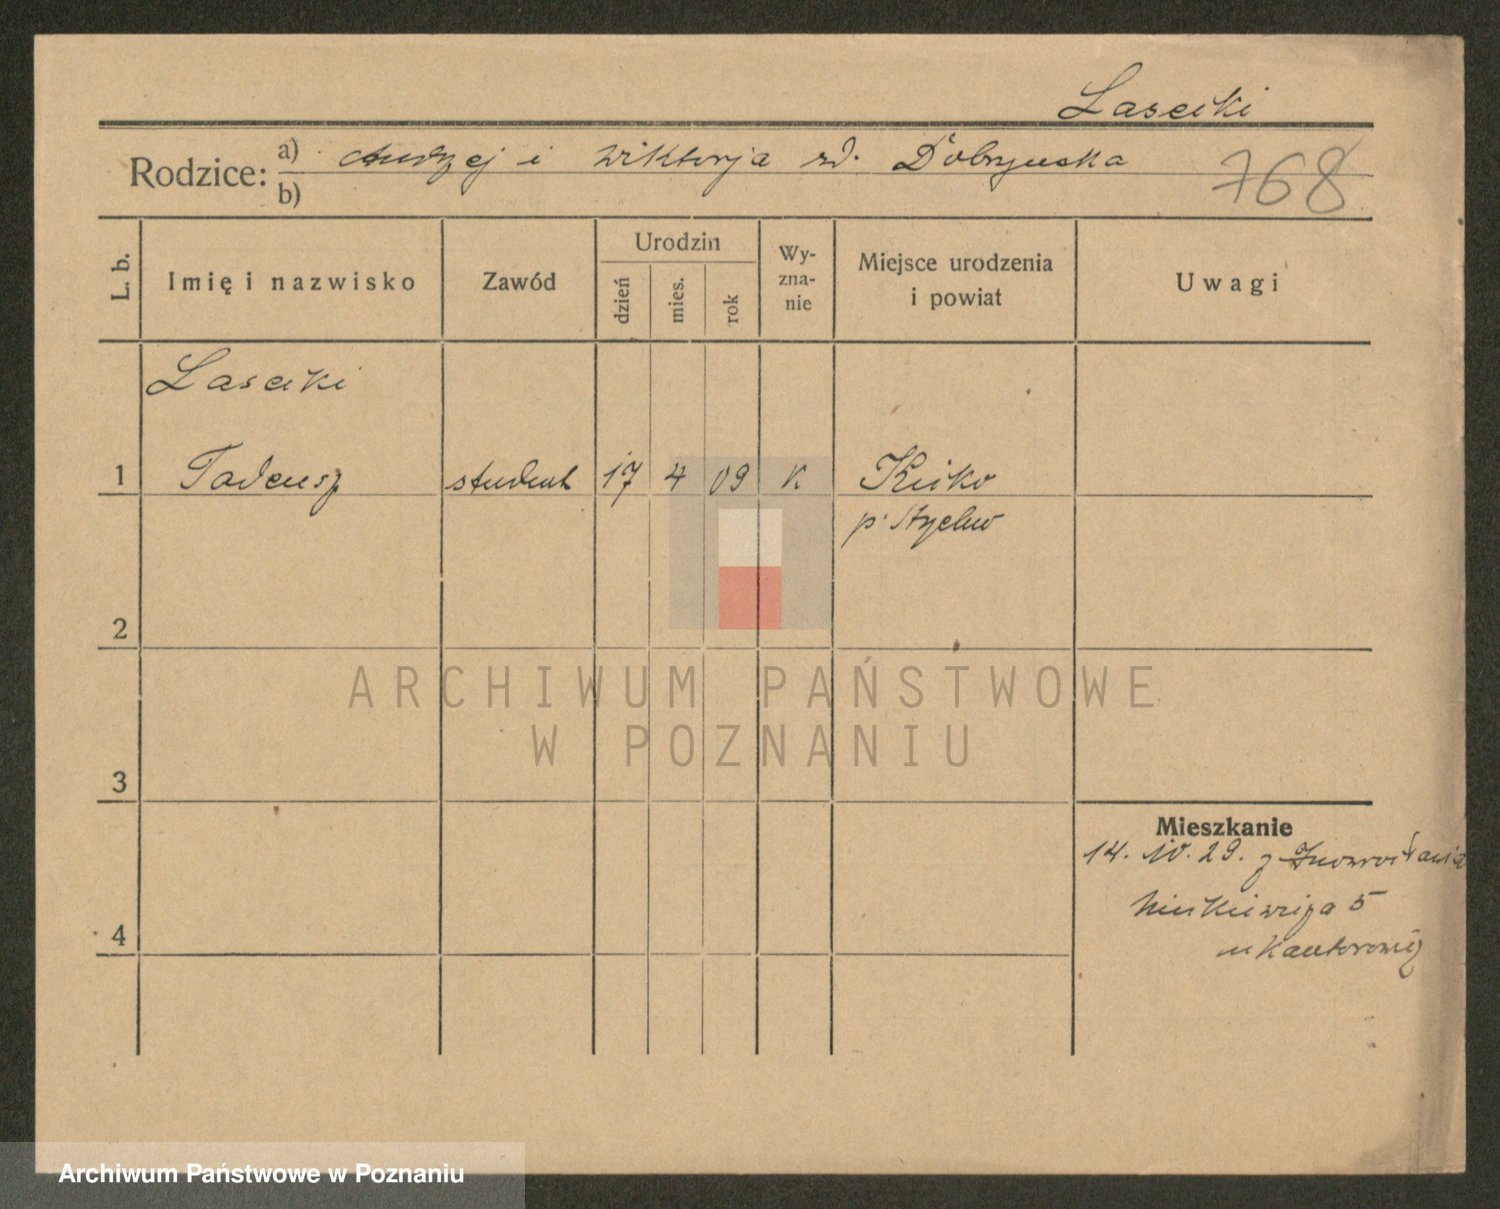 Lasecki
Rodzice: a) Andrzej i Wiktorja zd. Dobrzyńska
b)
768
L. b.
Imię i nazwisko
Zawód
Urodzin
dzień
mies.
rok
Wy-
zna-
nie
Miejsce urodzenia
i powiat
Uwagi
Lasecki
1 Tadeusz student 17 4 09 k.
p.
2
ARCHIWUM PAŃSTWOWE
W POZNANIU
3
Mieszkanie
14. 10. 29. z Inowrocławia
5
4
Archiwum Państwowe w Poznaniu